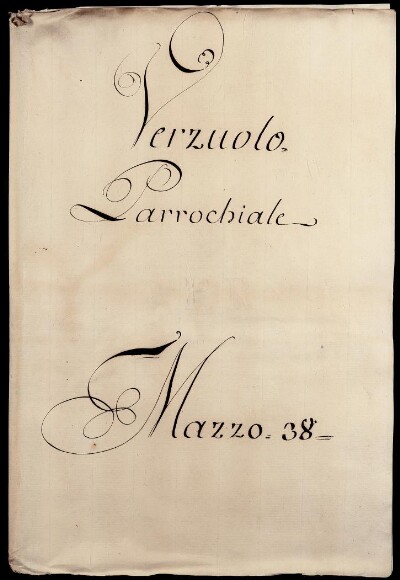 Verzuolo.
Parrochiale
Mazzo. 38=